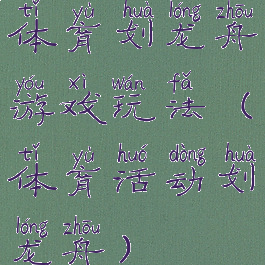 tǐ yù huà lóng zhōu
体育划龙舟
yóu xì wán fǎ
游戏玩法（
tǐ yù huó dòng huà
体育活动划
lóng zhōu
龙舟）